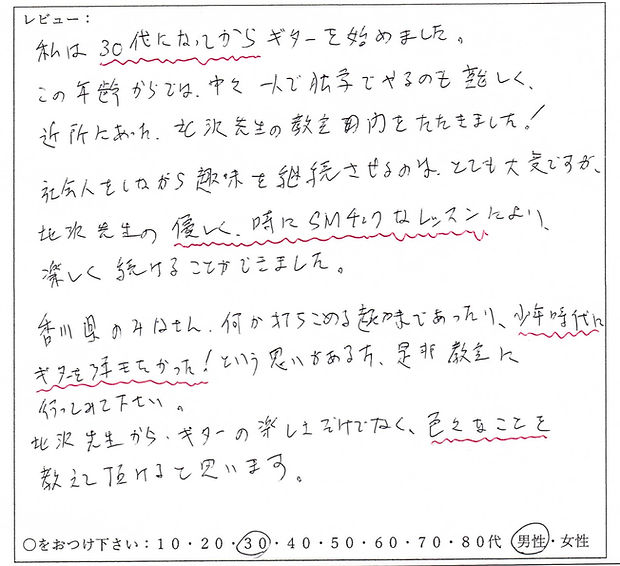 レビュー：
私は30代になってからギターを始めました。
この年齢からでは、中々一人で独学でやるのも難しく、
近所にあった、北沢先生の教室の門をたたきました！
社会人をしながら趣味を継続させるのは、とても大変ですが、
北沢先生の優しく、時にSMチックなレッスンにより、
楽しく続けることができました。
香川県のみなさん、何か打ちこめる趣味であったり、少年時代に
ギターを弾きたかった！という思いがある方、是非教室に
行ってみて下さい。
北沢先生から、ギターの楽しさだけでなく、色々なことを
教えて頂けると思います。
○をおつけ下さい：10・20・30・40・50・60・70・80代 男性・女性